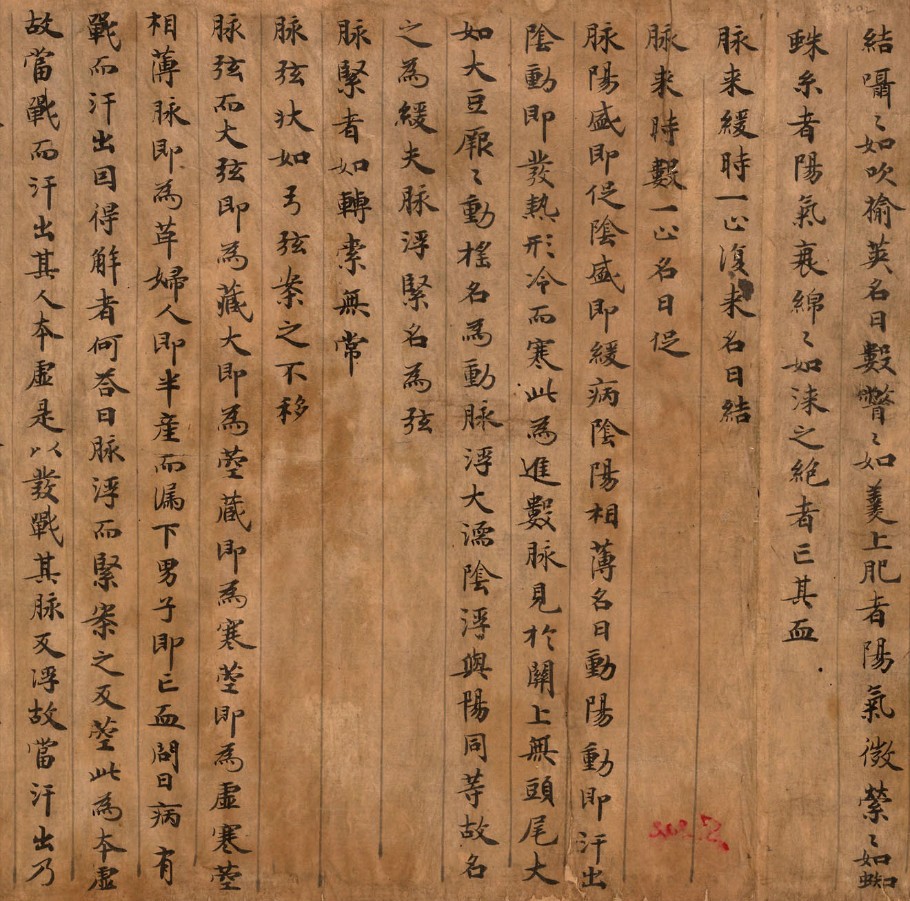 結囁〻如吹揄莢名曰數瞥〻如羹上肥者陽氣微縈〻如蜘
蛛糸者陽氣衰綿〻如漆之絶者亡其血
脉来緩時一止復来名曰結
脉来時數一止名曰促
脉陽盛即促陰盛即緩病陰陽相薄名曰動陽動即汗出
陰動即發熱形冷而寒此為進數脉見於關上無頭尾大
如大豆厥〻動揺名為動脉浮大濡陰浮與陽同等故名
之為緩夫脉浮緊名為弦
脉緊者如轉索無常
脉弦狀如弓弦案之不移
脉弦而大弦即為藏大即為莖藏即為寒莖即為虛寒莖
相薄脉即為革婦人即半産而漏下男子即亡血問曰病有
戰而汗出因得解者何荅曰脉浮而緊案之反莖此為本虛
故當戰而汗出其人本虛是以發戰其脉反浮故當汗出乃